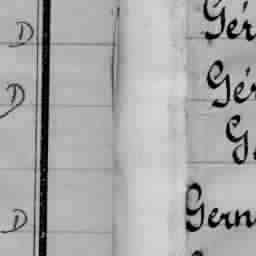 D Gér
D Gér
G
D Gern